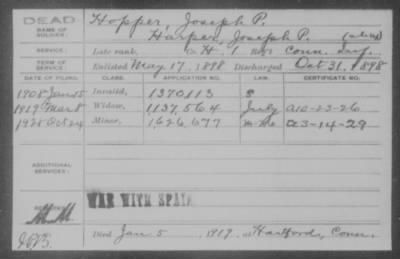 DEAD
NAME OF SOLDIER:
Hopper, Joseph P.
Harper, Joseph P. (alias)
SERVICE:
Late rank, Co. H, 1 Reg't Conn. Inf.
TERM OF SERVICE:
Enlisted May 17, 1898 Discharged Oct 31, 1898
DATE OF FILING. CLASS. APPLICATION NO. LAW. CERTIFICATE NO.
1908 Jan 15 Invalid, 1370113 S
1919 Mar 8 Widow, 1137,564 July A10-23-26
1928 Oct 24 Minor, 1626,677 A3-14-29
ADDITIONAL SERVICES:
WAR WITH SPAIN
M.M.
Died Jan 5, 1919, at Hartford, Conn.